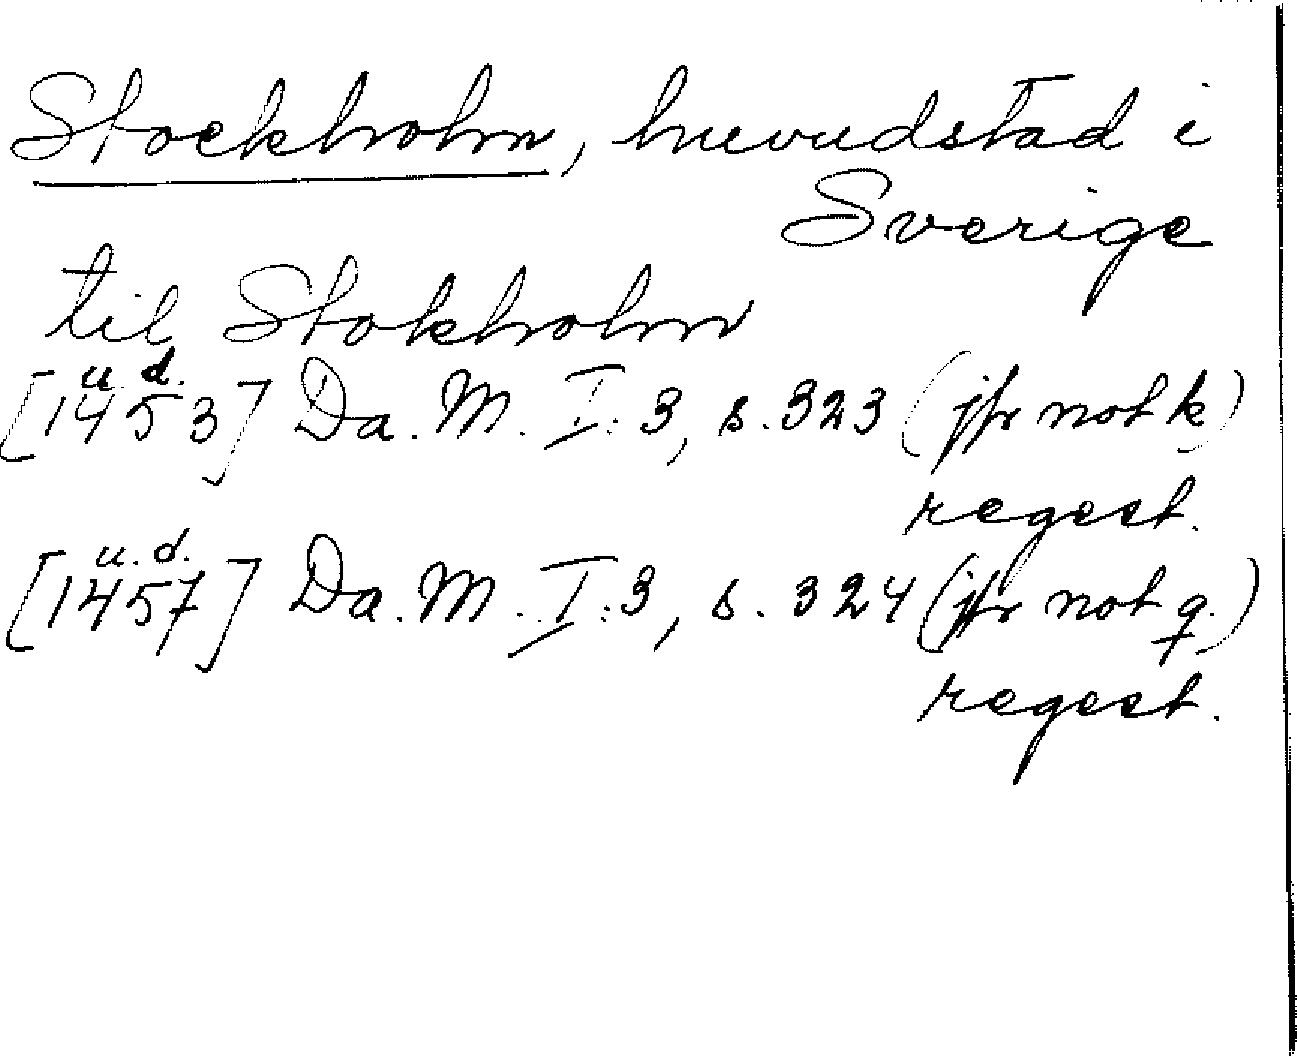 Stockholm, huvudstad i
Sverige
til Stokholm
u. d.
[1453] Da. M. I:3, s. 323 (jfr not k)
regest.
u. d.
[1457] Da. M. I:3, s. 324 (jfr not q.)
regest.